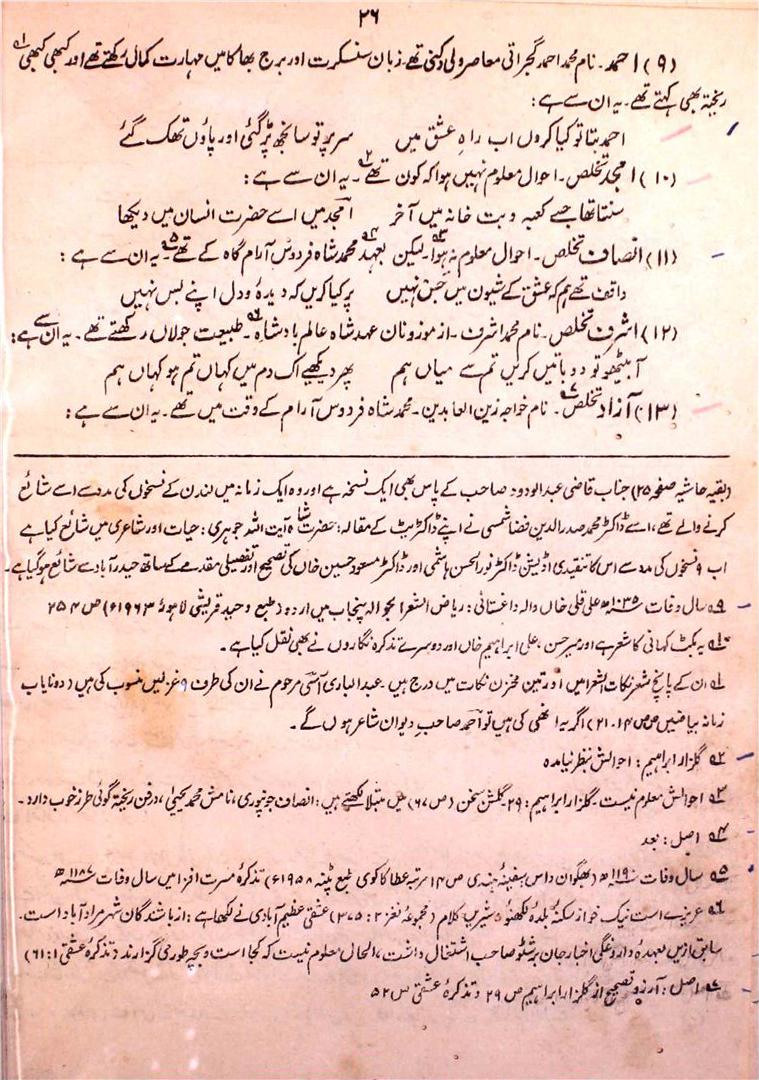 ۲۶
(۹) احمد۔ نام محمد احمد گجراتی معاصر ولی دکنی تھے۔ زبان سنسکرت اور برج بھاکا میں مہارت کمال رکھتے تھے اور کبھی کبھی
ریختہ بھی کہتے تھے۔ یہ ان سے ہے :
احمد بتا تو کیا کروں اب راہِ عشق میں سر پر تو سانجھ پڑ گئی اور پاؤں تھک گئے
(۱۰) امجد تخلص۔ احوال معلوم نہیں ہوا کہ کون تھے۔ یہ ان سے ہے :
سنتا تھا جسے کعبہ و بت خانہ میں آخر امجد میں اسے حضرت انسان میں دیکھا
(۱۱) انصاف تخلص۔ احوال معلوم نہ ہوا۔ لیکن بعہد محمد شاہ فردوس آرام گاہ کے تھے۔ یہ ان سے ہے :
واقف تھے ہم کہ عشق کے شیون میں حسن نہیں پر کیا کریں کہ دیدۂ و دل اپنے بس نہیں
(۱۲) اشرف تخلص۔ نام محمد اشرف۔ از موزونان عہد شاہ عالم بادشاہ۔ طبیعت جولاں رکھتے تھے۔ یہ ان سے ہے :
آ بیٹھو تو دو باتیں کریں تم سے میاں ہم پھر دیکھیے اک دم میں کہاں تم ہو کہاں ہم
(۱۳) آزاد تخلص۔ نام خواجہ زین العابدین۔ محمد شاہ فردوس آرام کے وقت میں تھے۔ یہ ان سے ہے :
(بقیہ حاشیہ صفحہ ۲۵) جناب قاضی عبدالودود صاحب کے پاس بھی ایک نسخہ ہے اور وہ ایک زمانہ میں لندن کے نسخوں کی مدد سے اسے شائع
کرنے والے تھے، اسے ڈاکٹر محمد صدرالدین فضا شمسی نے اپنے ڈاکٹریٹ کے مقالہ: حضرت شاہ آیت اللہ جوہری : حیات اور شاعری میں شائع کیا ہے
اب ۹ نسخوں کی مدد سے اس کا تنقیدی اڈیشن ڈاکٹر نورالحسن ہاشمی اور ڈاکٹر مسعود حسین خاں کی تصحیح اور تفصیلی مقدمے کے ساتھ حیدرآباد سے شائع ہو گیا ہے۔
۹ سال وفات ۱۰۳۵ھ علی قلی خاں والہ داغستانی : ریاض الشعرا بحوالہ پنجاب میں اردو (طبع وحید قریشی لاہور ۱۹۶۳ء) ص ۲۵۴
۱۰ یہ بکٹ کہانی کا شعر ہے اور میر حسن، علی ابراہیم خاں اور دوسرے تذکرہ نگاروں نے بھی نقل کیا ہے۔
۱ ان کے پانچ شعر نکات الشعرا میں اور تین مخزن نکات میں درج ہیں۔ عبدالباری آسی مرحوم نے ان کی طرف ۹ غزلیں منسوب کی ہیں (دو نایاب
زمانہ بیاضیں ص ص ۱۴۔۲۱) اگر یہ انھی کی ہیں تو احمد صاحب دیوان شاعر ہوں گے۔
۲ گلزار ابراہیم : احوالش بنظر نیامدہ
۳ احوالش معلوم نیست۔ گلزار ابراہیم : ۲۹۔ گلشن سخن (ص ۶۷) میں مبتلا لکھتے ہیں : انصاف جونپوری، نامش محمد یحییٰ، در فن ریختہ گوئی طرز خوب دارد۔
۴ اصل : بعد
۵ سال وفات ۱۱۹۰ھ (بھگوان داس سفینۂ ہندی ص ۱۴ مرتبہ عطا کاکوی طبع پٹنہ ۱۹۵۸ء) تذکرۂ مسرت افزا میں سال وفات ۱۱۸۷ھ
۶ عزیزے است نیک خو از سکنۂ بلدۂ لکھنؤ، شیریں کلام (مجموعۂ نغز ۲: ۳۷۵) عشقی عظیم آبادی نے لکھا ہے : از باشندگان شہر مراد آباد است۔
سابق ازیں بعہدۂ داروغگی اخبار جان برسٹو صاحب اشتغال داشت، الحال معلوم نیست کہ کجا است و بچہ طور می گزراند (تذکرۂ عشقی ۱: ۶۱)
۷ اصل : آرزو تصحیح از گلزار ابراہیم ص ۲۹ و تذکرۂ عشقی س ۵۲